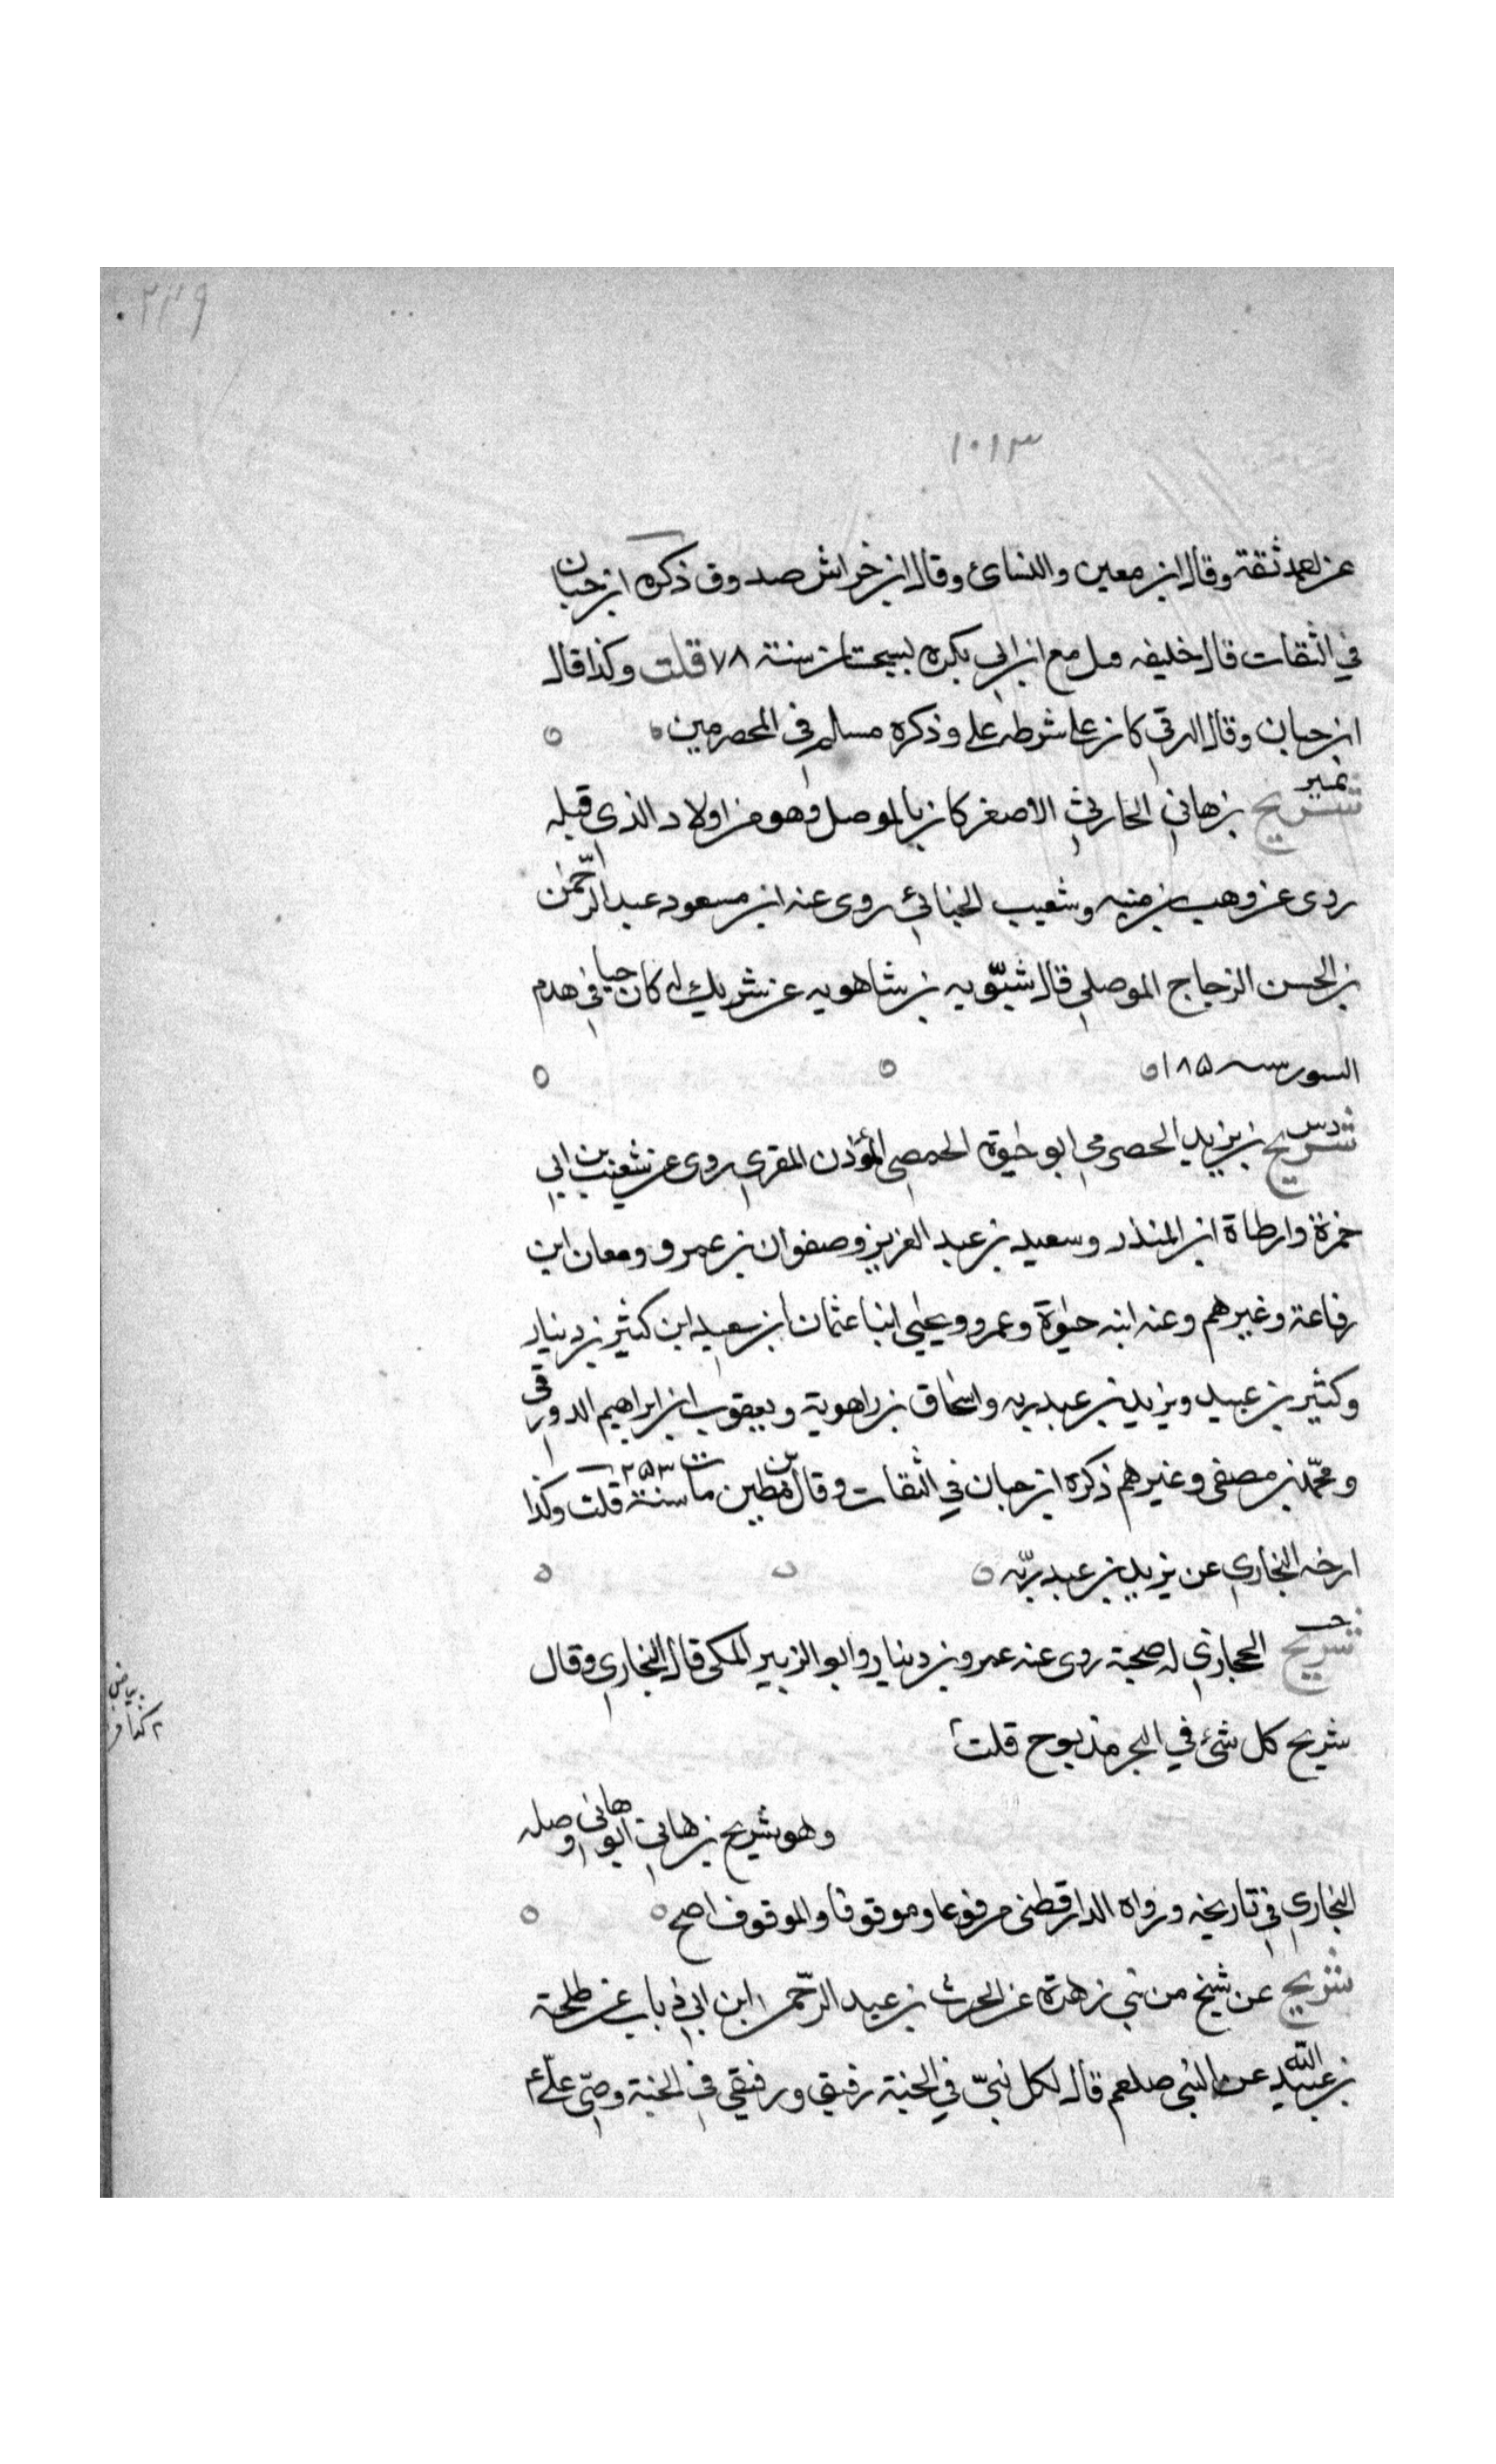 ٢٣٩
١٠١٣
عن احمد ثقة وقال ابن معين والنسائ وقال ابن خراش صدوق ذكره ابن حبان
في الثقات قال خليفه مع ابن ابي بكره بسجستان سنة ٧٨ قلت وكذا قال
ابن حبان وقال البرقي كان على شرطه علي وذكره مسلم في المحضرمين
تمييز
شريح بن هاني الحارثي الاصغر كان بالموصل وهو من اولاد الذي قبله
روى عن وهب بن منبه وشعيب الجبائي روى عنه ابن مسعود عبد الرحمن
بن الحسن الزجاج الموصلي قال شبّويه بن شاهويه عن شريك انه كان حيا في هدم
السور سنه ١٨٥
د س
شريح بن يزيد الحضرمي ابو حيوة الحمصي المؤذن المقرى روى عن شعيب بن ابي
حمزة وارطاة ابن المنذر وسعيد بن عبد العزيز وصفوان بن عمرو ومعان ابن
رفاعة وغيرهم وعنه ابنه حيوة وعمرو ويحيى ابنا عثمان ابن سعيد ابن كثير بن دينار
وكثير بن عبيد ويزيد بن عبد ربه واسحاق بن راهوية ويعقوب ابن ابراهيم الدورقي
ومحمّد بن مصفى وغيرهم ذكره ابن حبان في الثقات وقال مطين مات سنة ٢٥٣ قلت وكذا
ارخه البخاري عن يزيد بن عبد ربّه
خت
شريح الحجازي له صحبة روى عنه عمرو بن دينار وابو الزبير المكى قال البخاري وقال
شريح كل شئ في البحر مذبوح قلت
وهو شريح بن هاني ابو هاني وصله
البخاري في تاريخه ورواه الدارقطنى مرفوعا وموقوفا والموقوف اصح
شريح عن شيخ من بني زهرة عن الحرث بن عبد الرّحمن ابن ابي ذباب عن طلحة
بن عبيد الله عن النبى صلعم قال لكل نبيّ في الجنة رفيق ورفيقي في الجنة
بياض